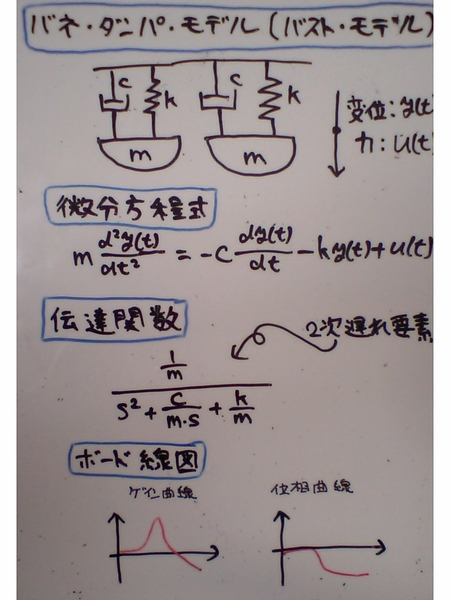 バネ・ダンパ・モデル(バスト・モデル)
c k c k
m m
変位:y(t)
力:u(t)
微分方程式
m d²y(t)/dt² = -c dy(t)/dt - ky(t)+u(t)
伝達関数
2次遅れ要素
1/m
s² + c/m·s + k/m
ボード線図
ゲイン曲線 位相曲線